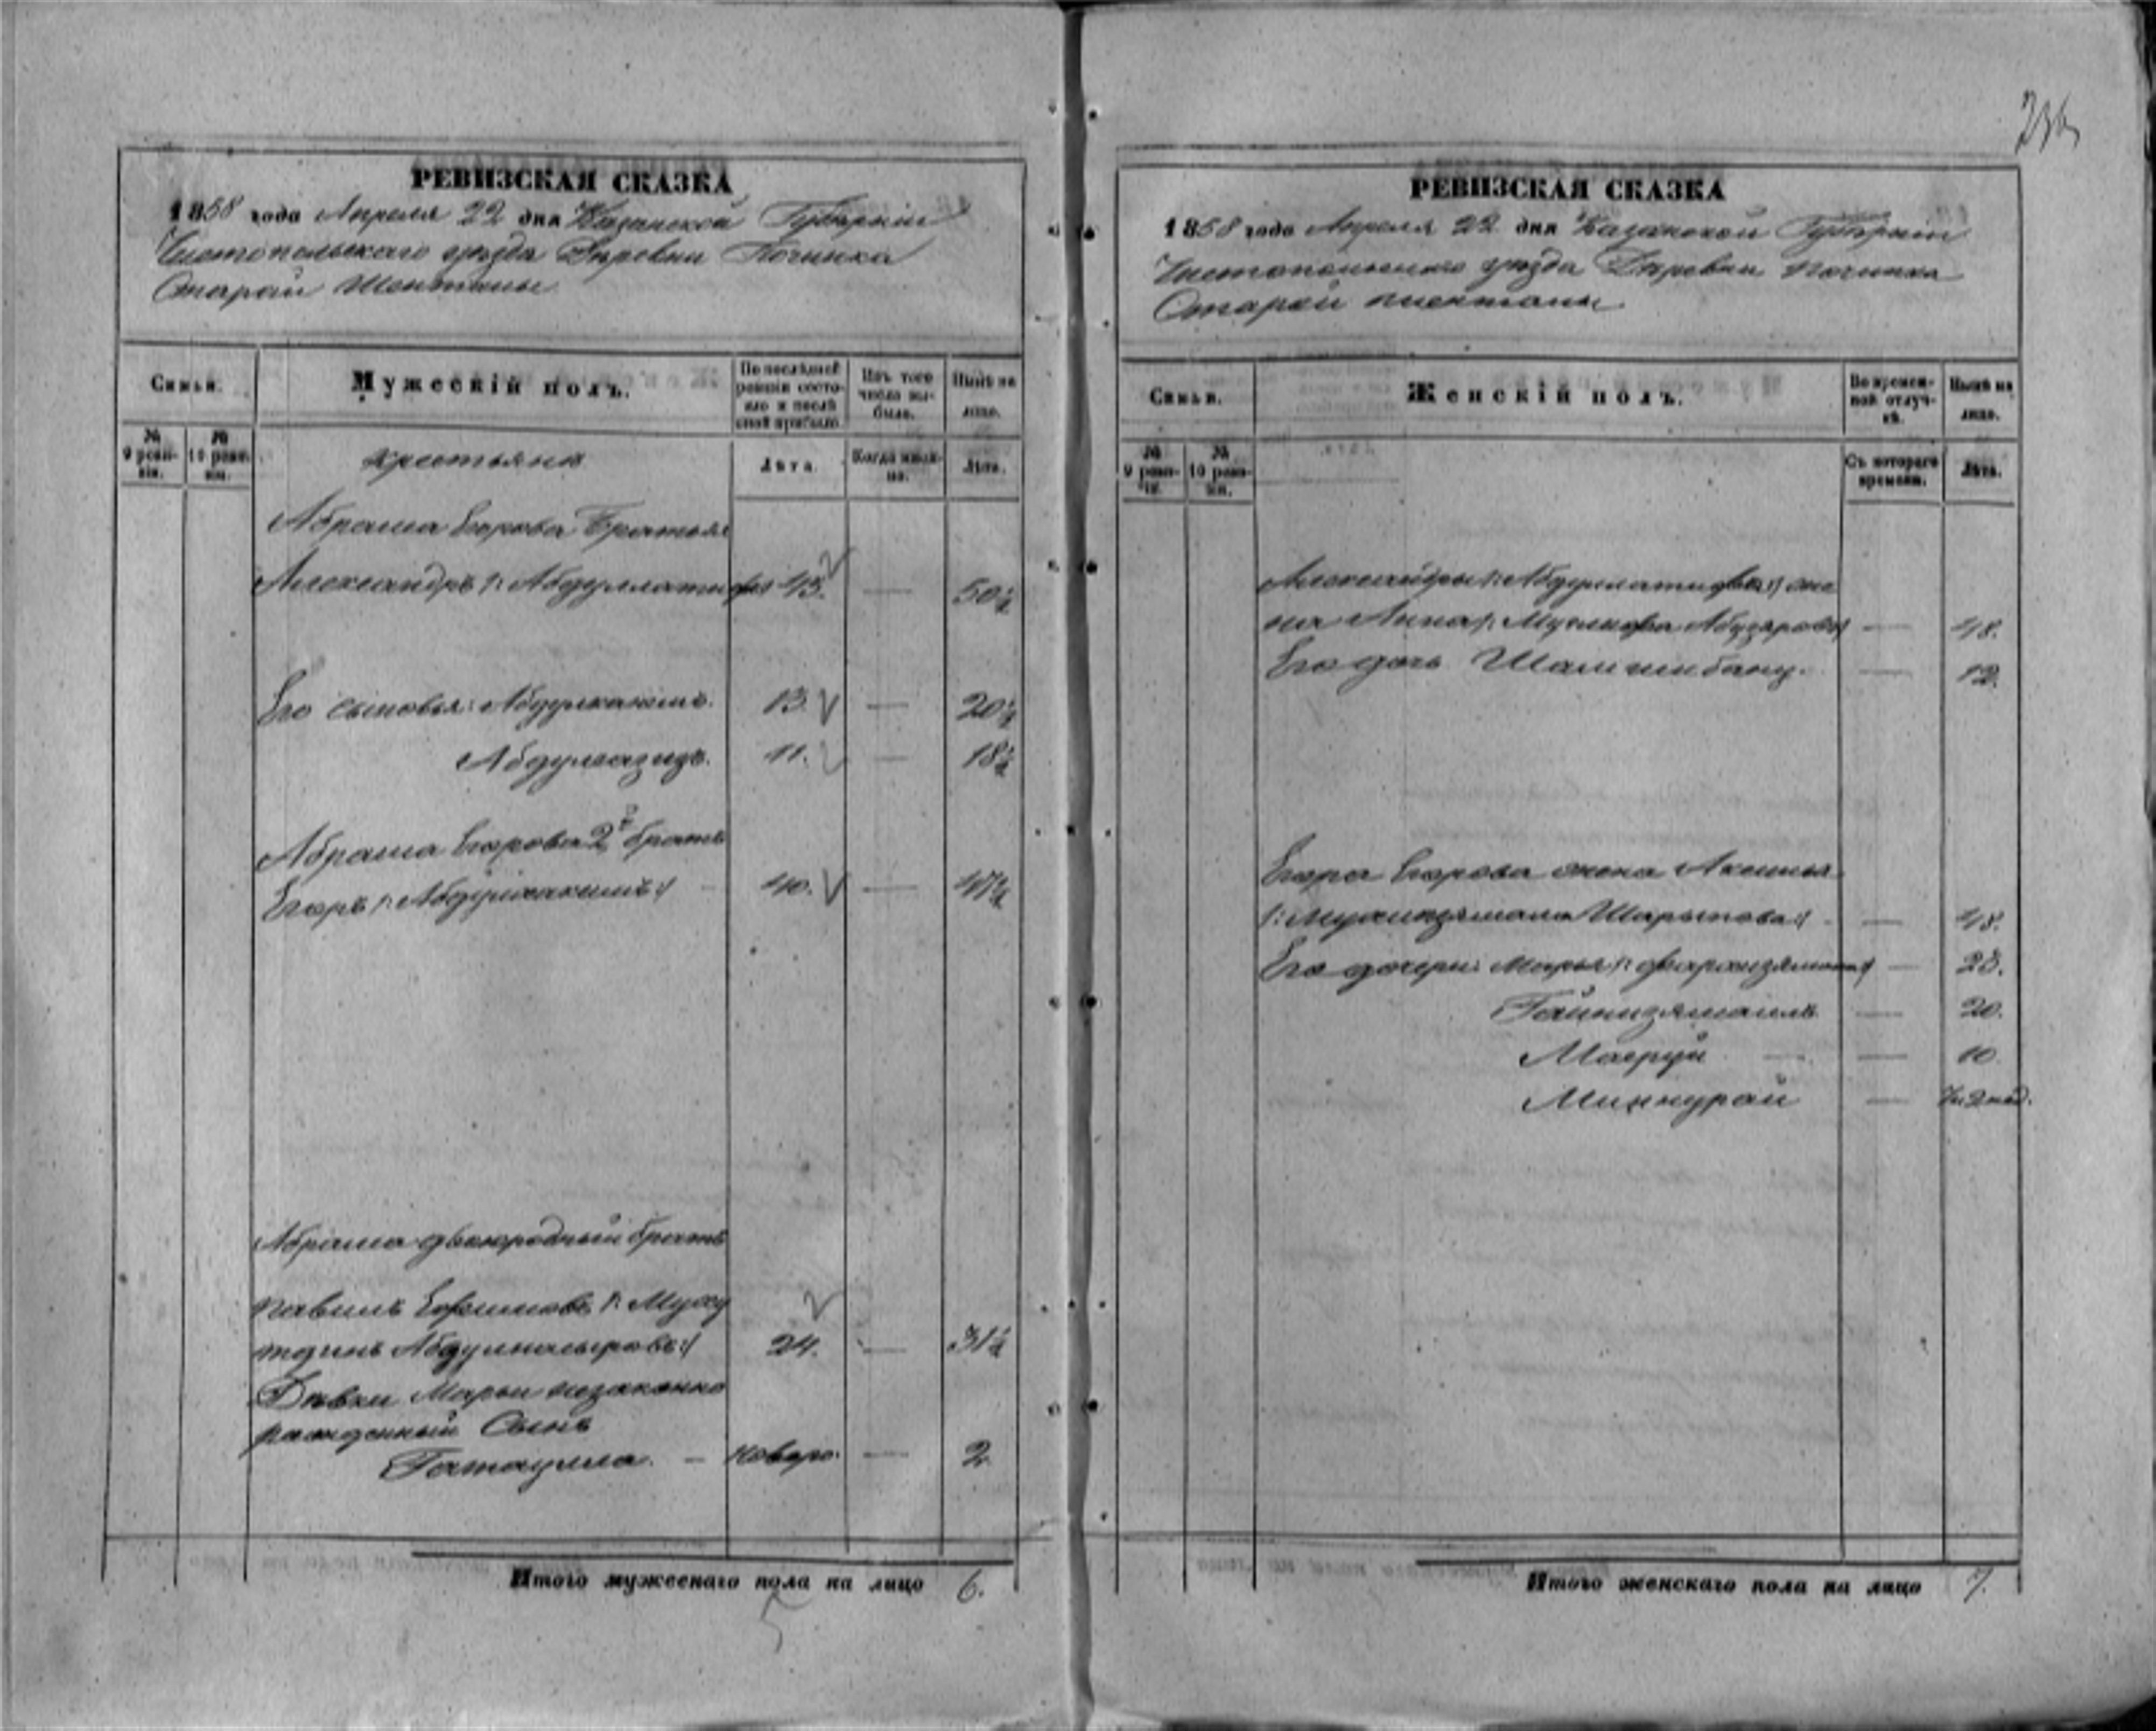 РЕВИЗСКАЯ СКАЗКА
1858 года Апреля 22 дня Казанской Губерніи
Чистопольскаго уѣзда Деревни Починка
Старой Шенталы
Семьи.
Мужескій полъ.
По послѣдней ревизіи состояло и послѣ оной прибыло
Изъ того числа выбыло.
Нынѣ на лицо.
№ 9 ревизіи.
№ 10 ревизіи.
Крестьяне
Лѣта.
Когда именно.
Лѣта.
Абраша Егорова Братья
Александръ /: Абдуллатифъ 43. — 50½
Его сыновья: Абдулкаюмъ. 13. — 20½
Абдулазизъ. 11. — 18½
Абрама Егорова 2й братъ
Егоръ /: Абдулхакимъ :/ 40. — 47½
Абрама двоюродный братъ
Павилъ Ефимовъ /: Муху
тдинъ Абдулнасыровъ :/ 24. — 31½
Дѣвки Марьи незаконно
рожденный Сынъ
Гатаулла. — новоро. — 2.
Итого мужескаго пола на лицо 6.
236
РЕВИЗСКАЯ СКАЗКА
1858 года Апреля 22 дня Казанской Губерніи
Чистопольскаго уѣзда Деревни Починка
Старой Шенталы
Семьи.
Женскій полъ.
Во временной отлучкѣ.
Нынѣ на лицо.
№ 9 ревизіи.
№ 10 ревизіи.
Съ котораго времени.
Лѣта.
Александры /: Абдуллатифва :/ же
на Анна /: Абузярова :/ — 48.
Его дочь Шамшибану. — 12.
Егора Егорова жена Аксинья
/: Шарыпова :/ — 48.
Его дочери: Марья — 23.
Гайнизямаль — 20.
Магруй — 10
Миннурай — 2 нед.
Итого женскаго пола на лицо 7.